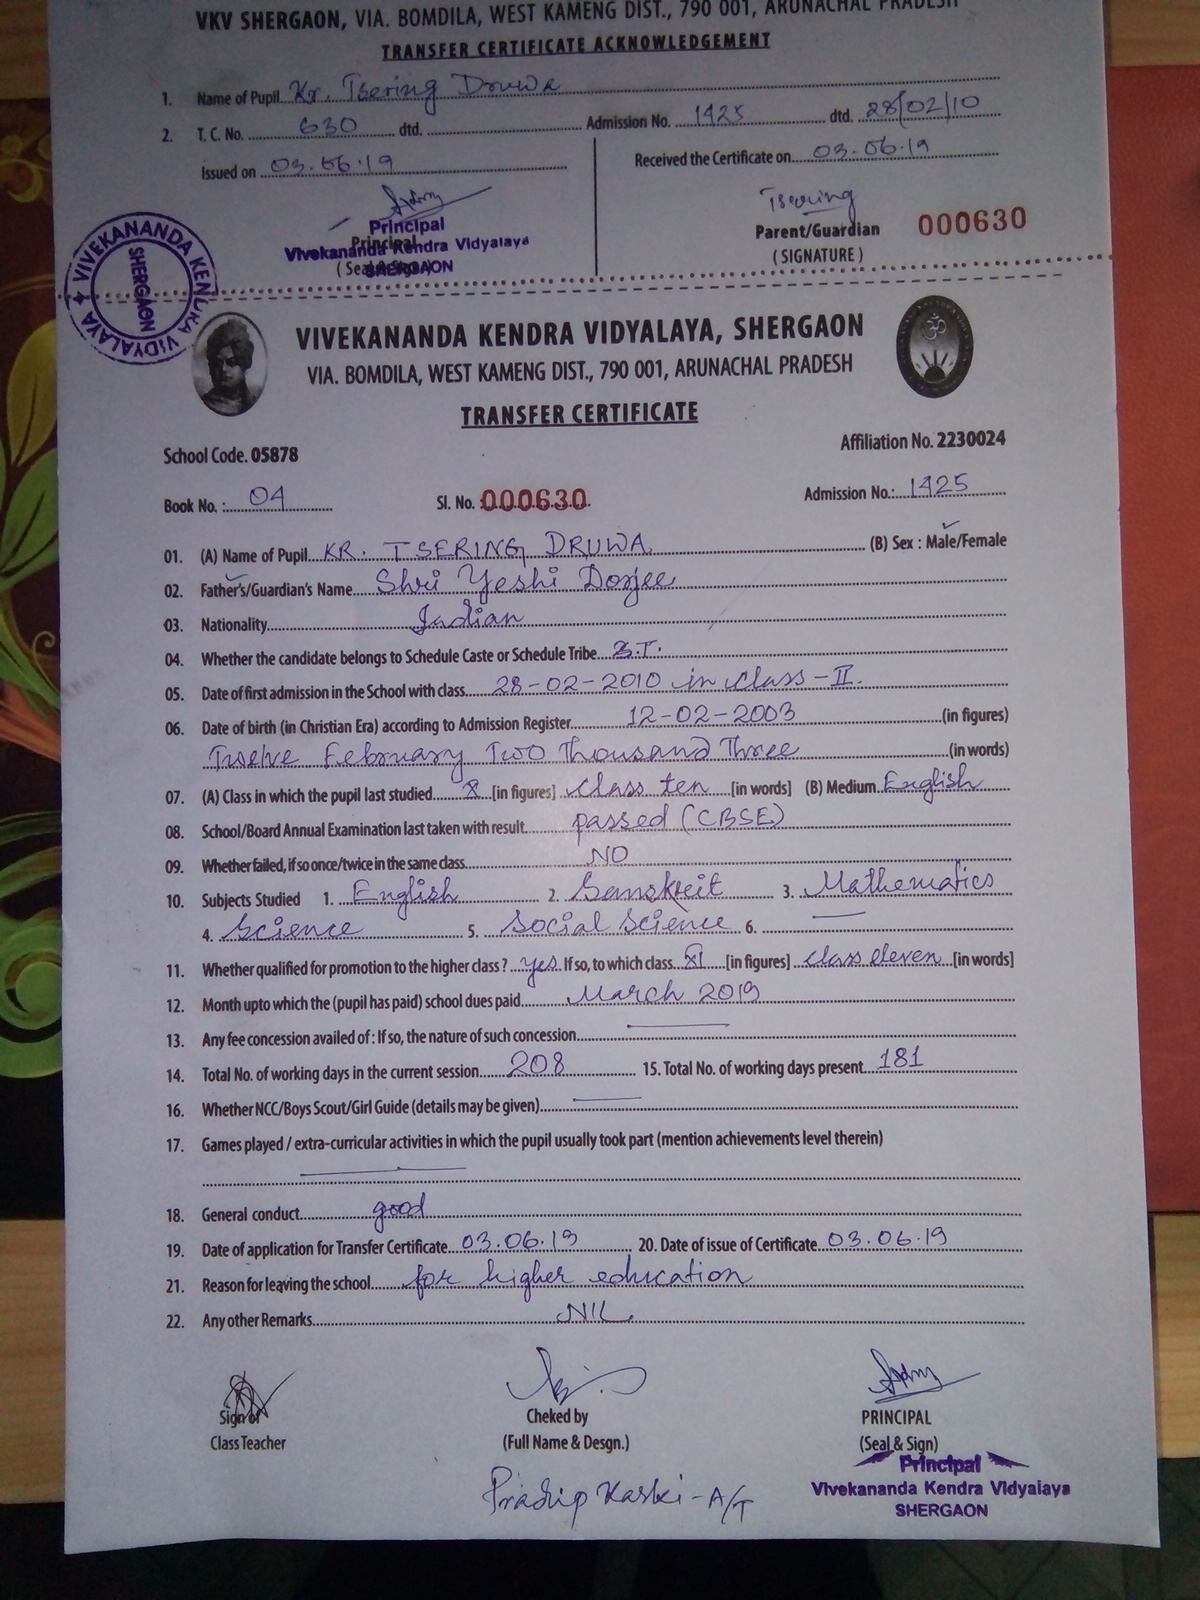 VKV SHERGAON, VIA. BOMDILA, WEST KAMENG DIST., 790 001, ARUNACHAL PRADESH
TRANSFER CERTIFICATE ACKNOWLEDGEMENT
1. Name of Pupil Kr. Tsering Druwa
2. T. C. No. 630 dtd. Admission No. 1425 dtd. 28/02/10
Issued on 03.06.19 Received the Certificate on 03.06.19
Tsering
Principal
Vivekananda Kendra Vidyalaya
SHERGAON
Principal
Parent/Guardian 000630
(SIGNATURE)
VIVEKANANDA KENDRA VIDYALAYA
SHERGAON
VIVEKANANDA KENDRA VIDYALAYA, SHERGAON
VIA. BOMDILA, WEST KAMENG DIST., 790 001, ARUNACHAL PRADESH
ॐ
TRANSFER CERTIFICATE
School Code. 05878 Affiliation No. 2230024
Book No.: 04 Sl. No. 000630 Admission No.: 1425
01. (A) Name of Pupil KR. TSERING DRUWA (B) Sex : Male/Female
02. Father's/Guardian's Name Shri Yeshi Dorjee
03. Nationality Indian
04. Whether the candidate belongs to Schedule Caste or Schedule Tribe S.T.
05. Date of first admission in the School with class 28-02-2010 in class-II.
06. Date of birth (in Christian Era) according to Admission Register 12-02-2003 (in figures)
Twelve February Two Thousand Three (in words)
07. (A) Class in which the pupil last studied X [in figures] class ten [in words] (B) Medium English
08. School/Board Annual Examination last taken with result passed (CBSE)
09. Whether failed, if so once/twice in the same class NO
10. Subjects Studied 1. English 2. Sanskrit 3. Mathematics
4. Science 5. Social Science 6. —
11. Whether qualified for promotion to the higher class? yes If so, to which class XI [in figures] class eleven [in words]
12. Month upto which the (pupil has paid) school dues paid March 2019
13. Any fee concession availed of : If so, the nature of such concession —
14. Total No. of working days in the current session 208 15. Total No. of working days present 181
16. Whether NCC/Boys Scout/Girl Guide (details may be given) —
17. Games played / extra-curricular activities in which the pupil usually took part (mention achievements level therein)
—
18. General conduct good
19. Date of application for Transfer Certificate 03.06.19 20. Date of issue of Certificate 03.06.19
21. Reason for leaving the school for higher education
22. Any other Remarks NIL
Sign of Cheked by PRINCIPAL
Class Teacher (Full Name & Desgn.) (Seal & Sign)
Pradip Karki - A/T
Principal
Vivekananda Kendra Vidyalaya
SHERGAON